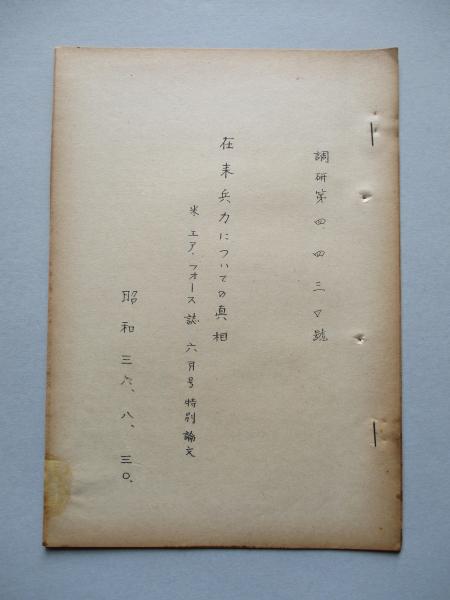 調研第四、四三▽號
在来兵力についての真相
米エア、フォース誌 六月号特別論文
昭和三六、八、三〇、